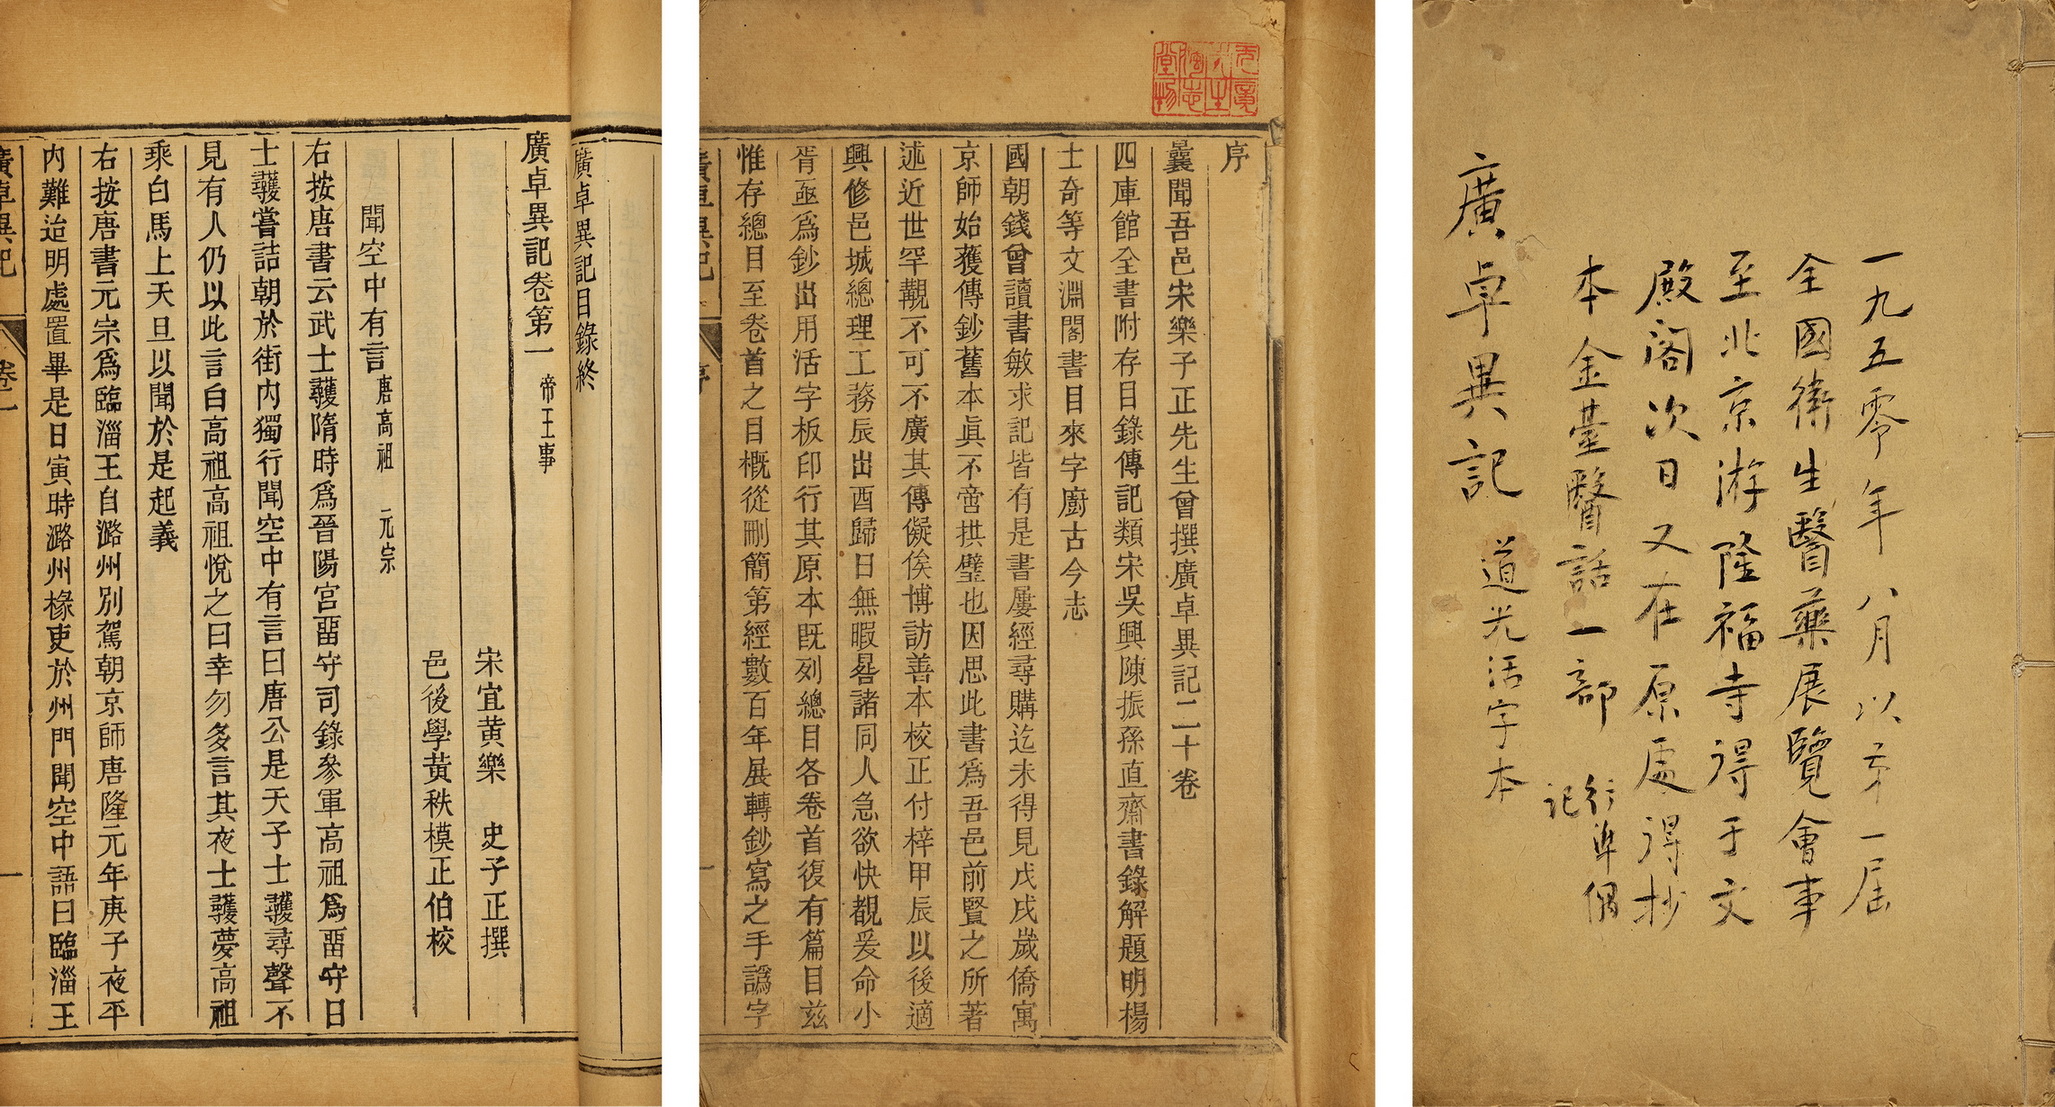 廣卓異記 道光活字本
一九五零年八月以第一屆
全國衛生醫藥展覽會事
至北京游隆福寺得于文
殿阁次日又在原處得抄
本金臺醫話一部
行準偶
記
序
曩聞吾邑宋樂子正先生曾撰廣卓異記二十卷
四庫館全書附存目錄傳記類宋吳興陳振孫直齋書錄解題明楊
士奇等文淵閣書目來字廚古今志
國朝錢曾讀書敏求記皆有是書屢經尋購迄未得見戊戌歲僑寓
京師始獲傳鈔舊本眞不啻拱璧也因思此書爲吾邑前賢之所著
述近世罕覯不可不廣其傳儗俟博訪善本校正付梓甲辰以後適
興修邑城總理工務辰出酉歸日無暇晷諸同人急欲快覩爰命小
胥亟爲鈔出用活字板印行其原本既列總目各卷首復有篇目玆
惟存總目至卷首之目概從刪簡第經數百年展轉鈔寫之手譌字
廣卓異記 序 一
廣卓異記目錄終
廣卓異記卷第一 帝王事
宋宜黃樂 史子正撰
邑後學黄秩模正伯校
聞空中有言 唐高祖 元宗
右按唐書云武士彠隋時爲晉陽宮畱守司錄參軍高祖爲畱守日
士彠嘗詰朝於街内獨行聞空中有言曰唐公是天子士彠尋聲不
見有人仍以此言白高祖高祖悅之曰幸勿多言其夜士彠夢高祖
乘白馬上天旦以聞於是起義
右按唐書元宗爲臨淄王自潞州別駕朝京師唐隆元年庚子夜平
内難迨明處置畢是日寅時潞州椽吏於州門聞空中語曰臨淄王
廣卓異記 卷一 一